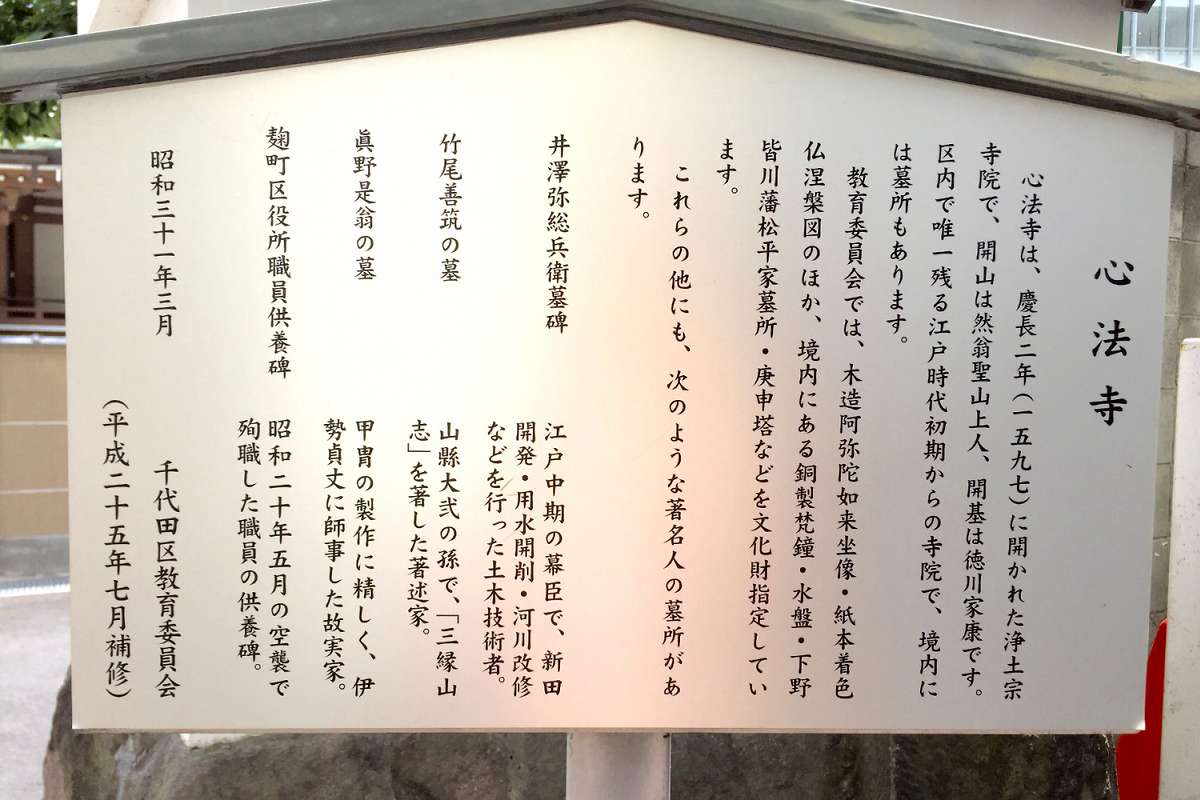 心法寺
心法寺は、慶長二年（一五九七）に開かれた浄土宗
寺院で、開山は然翁聖山上人、開基は徳川家康です。
区内で唯一残る江戸時代初期からの寺院で、境内に
は墓所もあります。
教育委員会では、木造阿弥陀如来坐像・紙本着色
仏涅槃図のほか、境内にある銅製梵鐘・水盤・下野
皆川藩松平家墓所・庚申塔などを文化財指定してい
ます。
これらの他にも、次のような著名人の墓所があ
ります。
井澤弥総兵衛墓碑
江戸中期の幕臣で、新田
開発・用水開削・河川改修
などを行った土木技術者。
竹尾善筑の墓
山縣大弐の孫で、「三縁山
志」を著した著述家。
眞野是翁の墓
甲冑の製作に精しく、伊
勢貞丈に師事した故実家。
麹町区役所職員供養碑
昭和二十年五月の空襲で
殉職した職員の供養碑。
昭和三十一年三月
千代田区教育委員会
（平成二十五年七月補修）